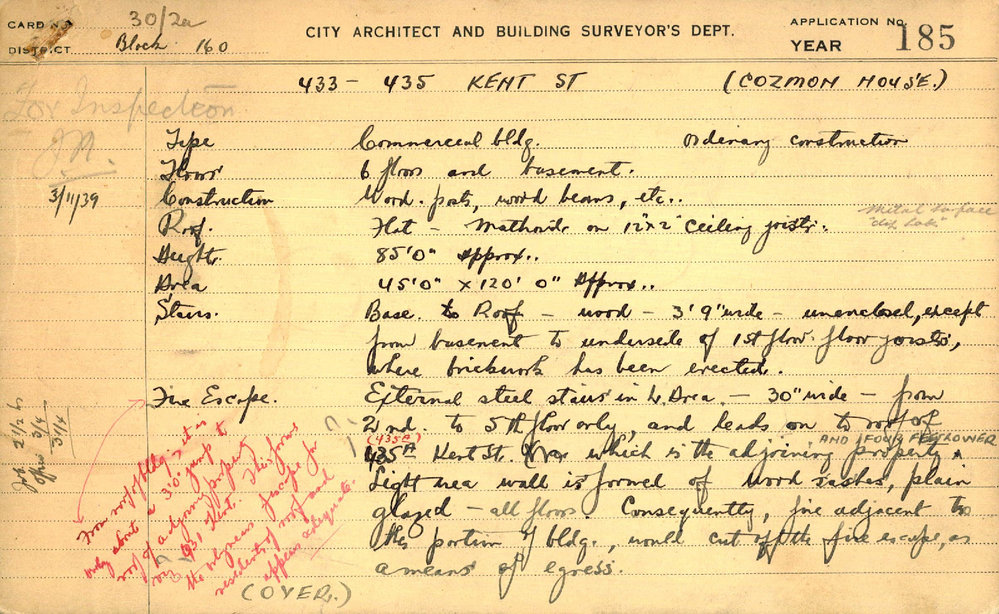 CARD No. 30/2a
DISTRICT Block 160
CITY ARCHITECT AND BUILDING SURVEYOR'S DEPT.
APPLICATION No.
YEAR 185
433 - 435 KENT ST (COZMON HOUSE.)
For Inspection
3/11/39
Type Commercial bldg. Ordinary construction
Floors 6 floors and basement.
Construction Wood posts, wood beams, etc..
Roof. Flat - Malthoid on 12"x2" Ceiling joists.
Metal surface
Height. 85'0" Approx..
Area 45'0" x 120' 0" Approx..
Stairs. Base. to Roof - wood - 3'9" wide - unenclosed, except
from basement to underside of 1st floor floor joists,
where brickwork has been erected.
Fire Escape. External steel stairs in L. Area. - 30" wide - from
2nd. to 5th floor only, and leads on to roof of
(435A)
435A Kent St. which is the adjoining property.
AND
Light area wall is formed of wood sashes, plain
glazed - all floors. Consequently, fire adjacent to
this portion of bldg., would cut off the fire escape, as
a means of egress.
From roof of bldg, it is
only about a 3'0" jump to
roof of adjoining property
431 Kent. This forms
the only means of escape for
residents of roof and
appears adequate.
(OVER.)